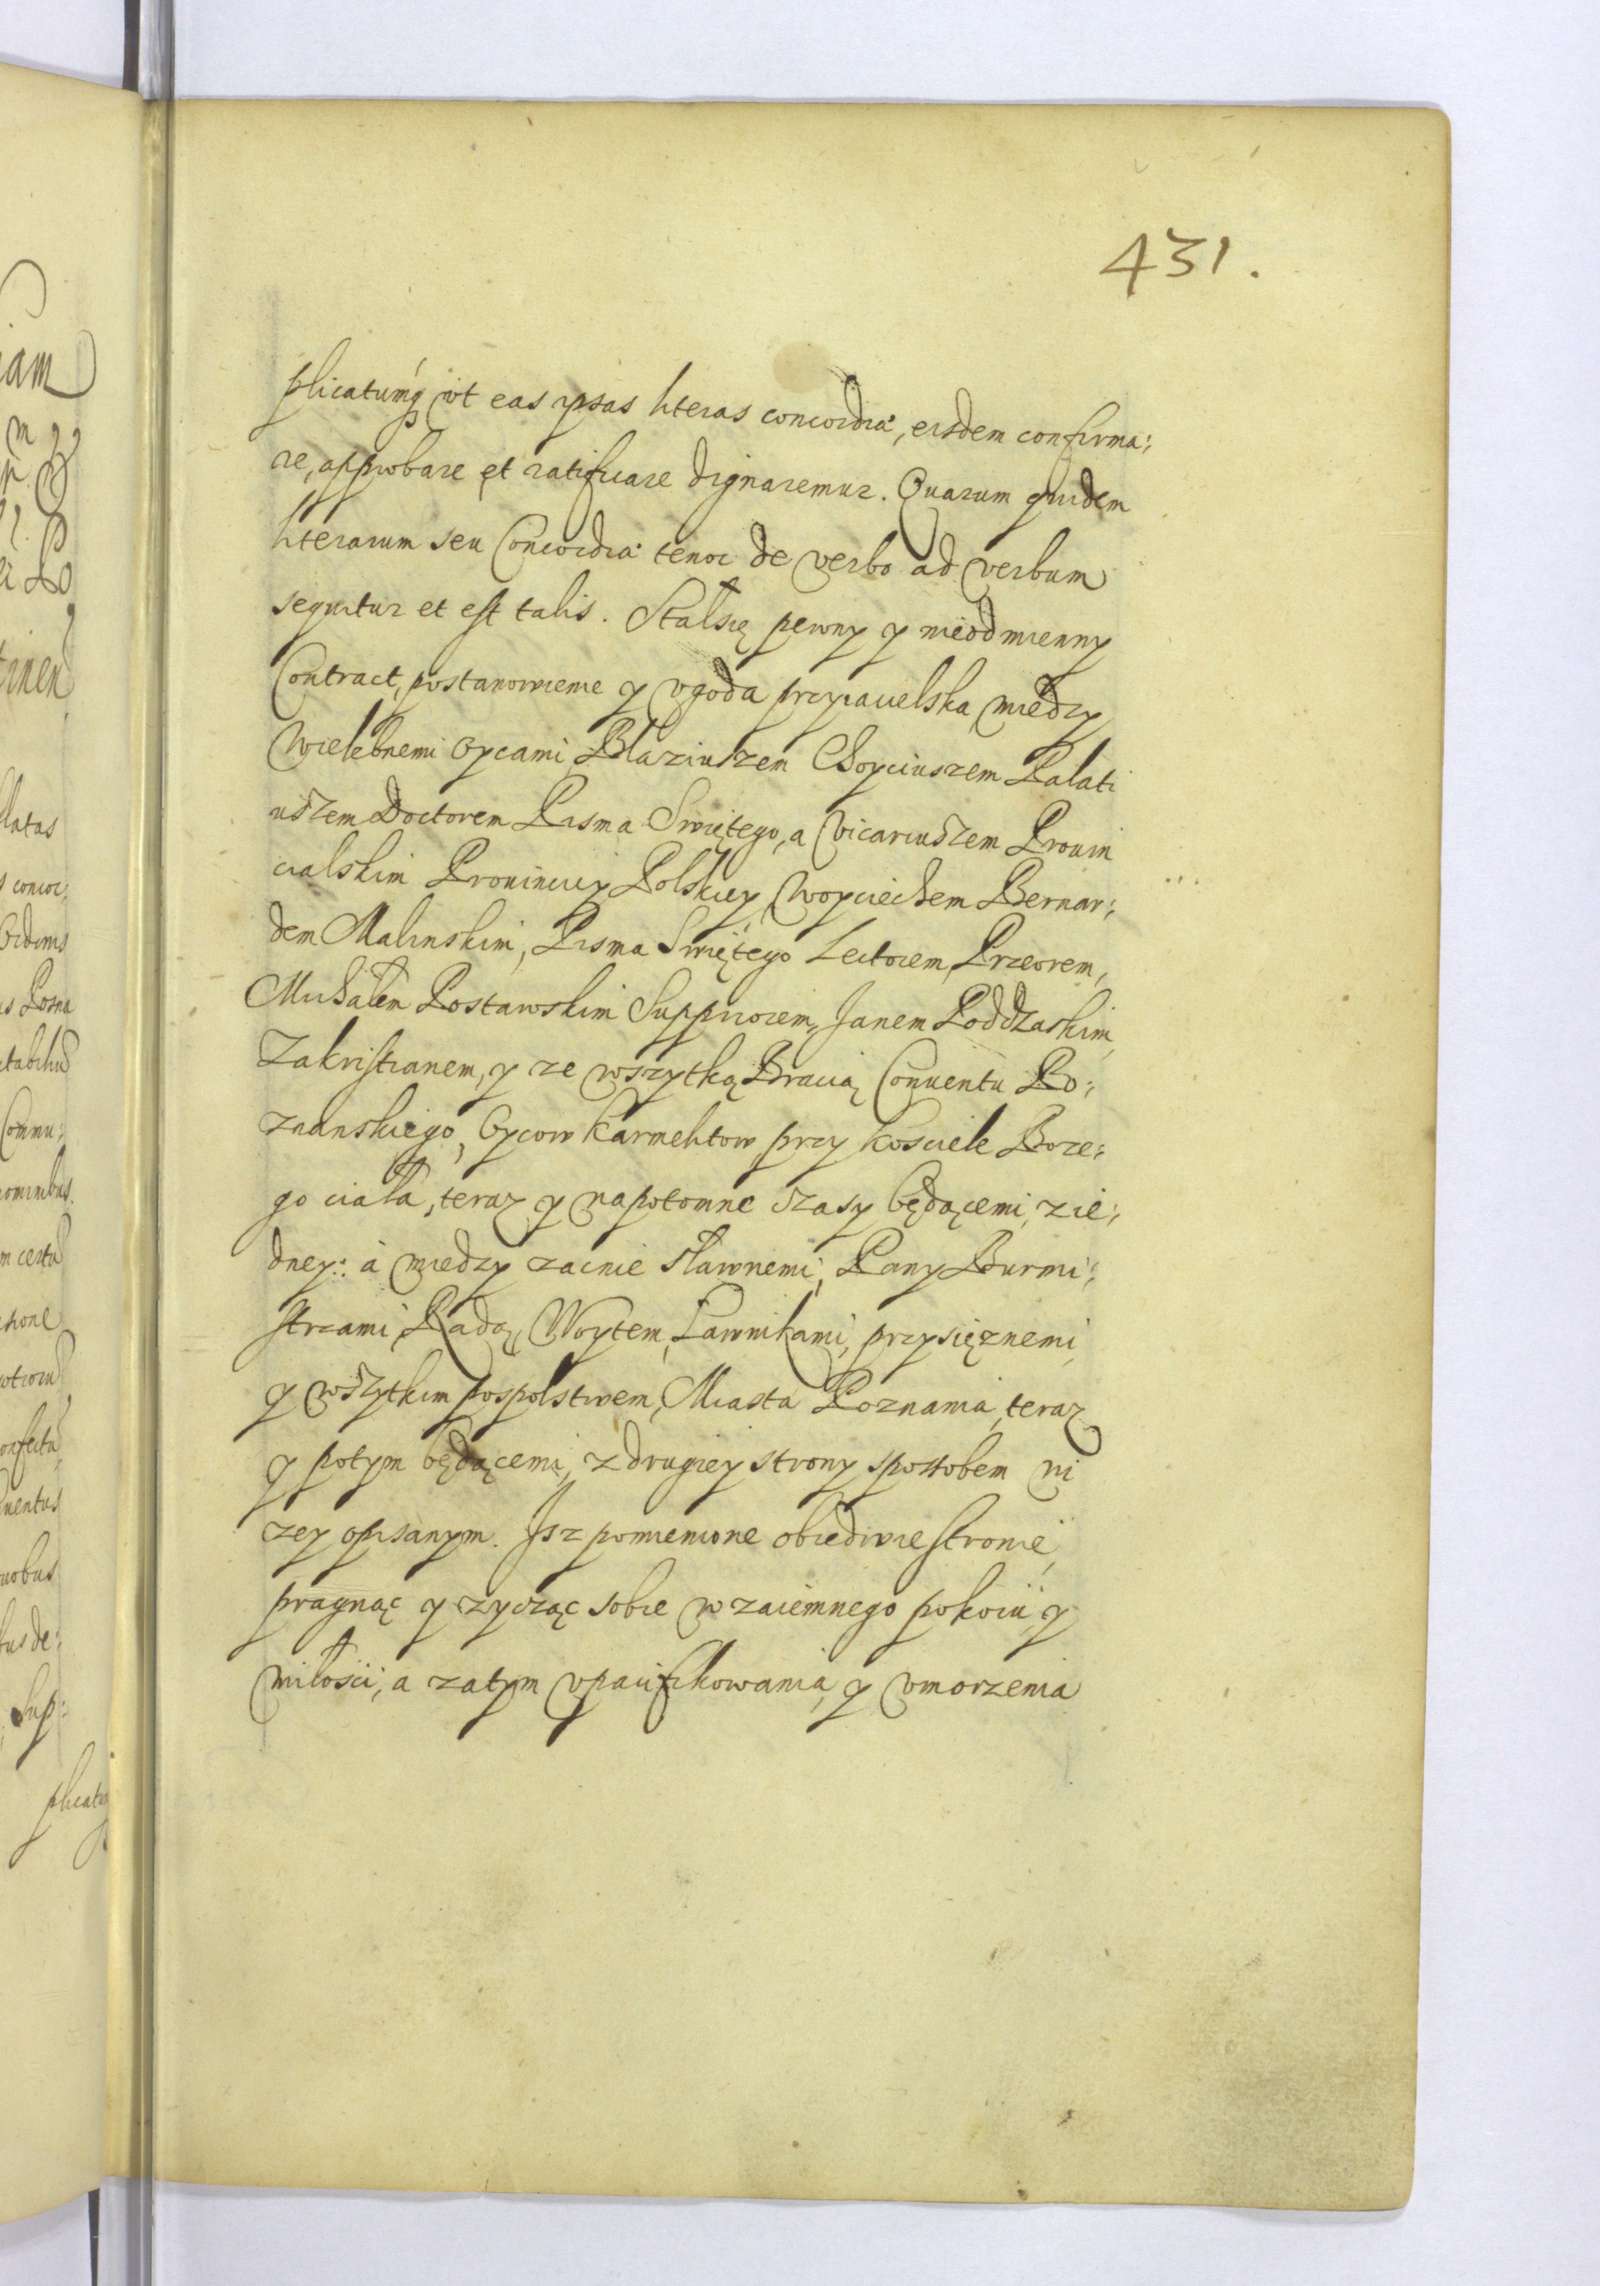 431.
plicatumq ut eas ypsas literas concordiæ, eisdem confirma:
re, approbare et ratificare dignaremur. Quarum quidem
literarum seu Concordiæ tenor de verbo ad verbum
sequitur et est talis. Stałsię pewny y nieodmienny
Contract, postanowienie y vgoda przyiacielska miedzy
Wielebnemi Oycami Błaziuszem Palati
uszem Doctorem Pisma Swiętego, a Vicariuszem Prouin
cialskim Prouinciey Polskiey, Woyciechem Bernar:
dem Malinskim, Pisma Swiętego Lectorem, Przeorem,
Michałem Postawskim Suppriorem, Janem Poddzaskim,
Zakristianem, y ze wszytką Bracią Conuentu Po:
znanskiego, Oycow Karmelitow przy Kosciele Boze:
go ciała, teraz y napotomne czasy będącemi, z ie:
dney: à miedzy zacnie sławnemi, Pany Burmi:
strzami, Radą, Woytem, Ławnikami, przysięznemi,
y wszytkim pospolstwem, Miasta Poznania, teraz
y potym będącemi, z drugiey strony sposobem ni
zey opisanym. Isz pomienione obiedwie stronie,
pragnąc y zycząc sobie wzaiemnego pokoiu, y
miłości, a zatym vpacifikowania, y vmorzenia
iam
latas
Posna
Commu:
m certa
nobus
Sup:
plicatu